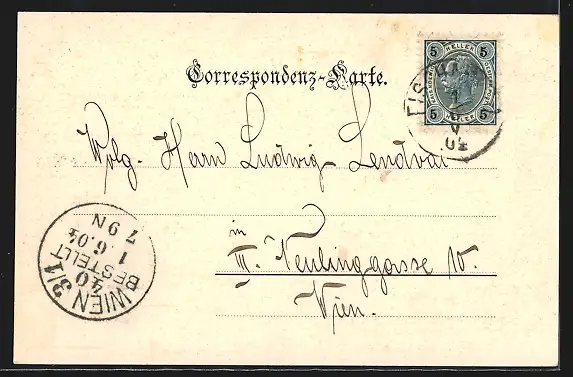 Correspondenz-Karte.
5 HELLER 5
5 HELLER 5
V
04
Wolg. Herrn Ludwig Lendvai
in
III. Neulinggasse 10.
Wien.
WIEN 3/1
40
BESTELLT
1.6.04
7 9N